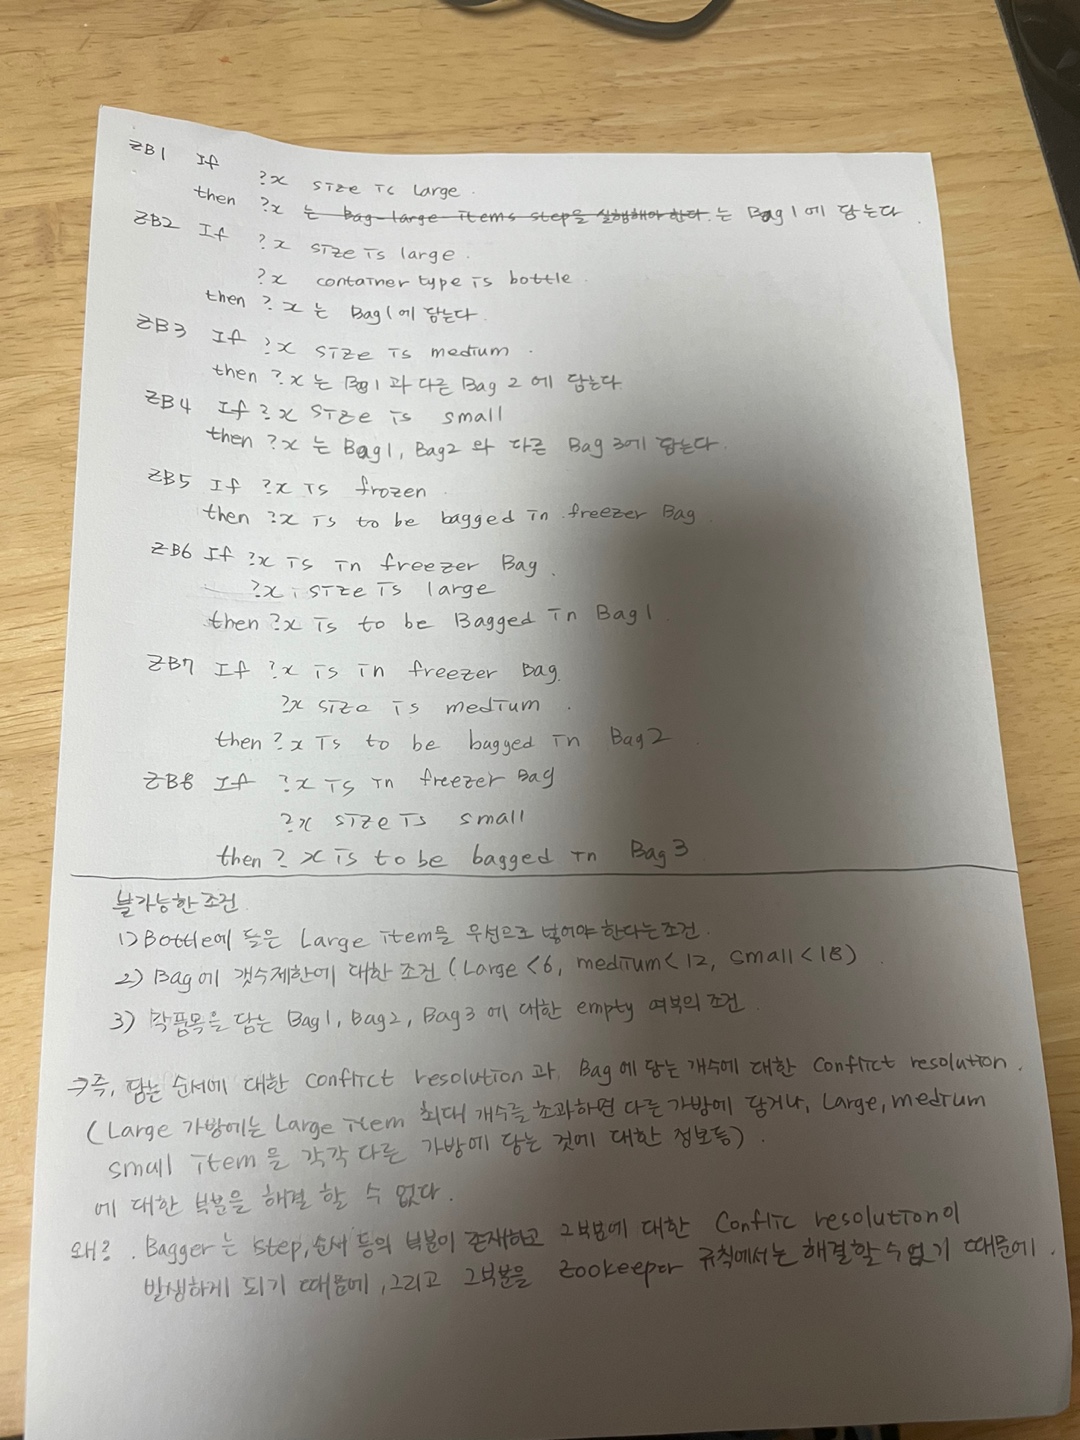 ZB1 If
?x size is large.
then ?x 는 bag-large-items step을 실행해야 한다. 는 Bag1에 담는다.
ZB2 If ?x size is large.
?x container type is bottle.
then ?x 는 Bag1에 담는다.
ZB3 If ?x size is medium.
then ?x 는 Bag1과 다른 Bag 2에 담는다
ZB4 If ?x size is small
then ?x 는 Bag1, Bag2 와 다른 Bag 3에 담는다.
ZB5 If ?x is frozen.
then ?x is to be bagged in freezer Bag
ZB6 If ?x is in freezer Bag.
?x size is large
then ?x is to be Bagged in Bag1.
ZB7 If ?x is in freezer Bag.
?x size is medium.
then ?x is to be bagged in Bag2
ZB8 If ?x is in freezer Bag
?x size is small
then ?x is to be bagged in Bag3
불가능한 조건.
1) Bottle에 들은 Large item을 우선으로 넣어야 한다는 조건.
2) Bag에 갯수제한에 대한 조건 (Large<6, medium<12, small<18)
3) 각 품목을 담는 Bag1, Bag2, Bag3에 대한 empty 여부의 조건.
⇒즉, 담는 순서에 대한 conflict resolution과 Bag에 담는 개수에 대한 Conflict resolution.
(Large 가방에는 Large item 최대 개수를 초과하면 다른 가방에 담거나, Large, medium
small item을 각각 다른 가방에 담는 것에 대한 정보등).
에 대한 부분을 해결 할 수 없다.
왜?. Bagger는 step, 순서 등의 부분이 존재하고 그부분에 대한 Conflic resolution이
발생하게 되기 때문에, 그리고 그부분을 Zookeeper 규칙에서는 해결할 수 없기 때문에.